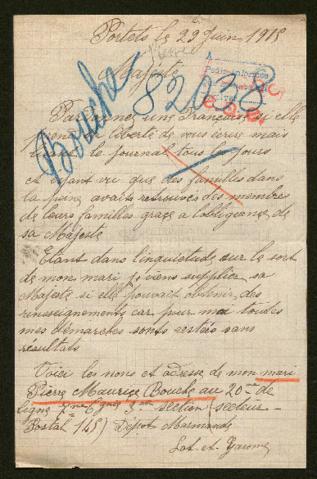 Portets le 29 Juin 1915
Majesté
Bouché
82038
Pardonne une Française si elle
prend la liberté de vous écrire mais
lisant le journal tous les jours
et ayant vu que des familles dans
la peine avaits retrouvés des membres
de leurs familles grace a l'obligeance de
sa Majesté
Etant dans l'inquietude sur le sort
de mon mari je viens supplier sa
Majesté si elle pouvait obtenir des
renseignements car pour moi toutes
mes démarches sonts restées sans
résultats
Voici les noms et adresse de mon mari
Pierre Maurice Bouché au 20me de
ligne 7me Cgnie 3me section (secteur
Postal 145) Dépot Marmande
Lot. et. Garonne